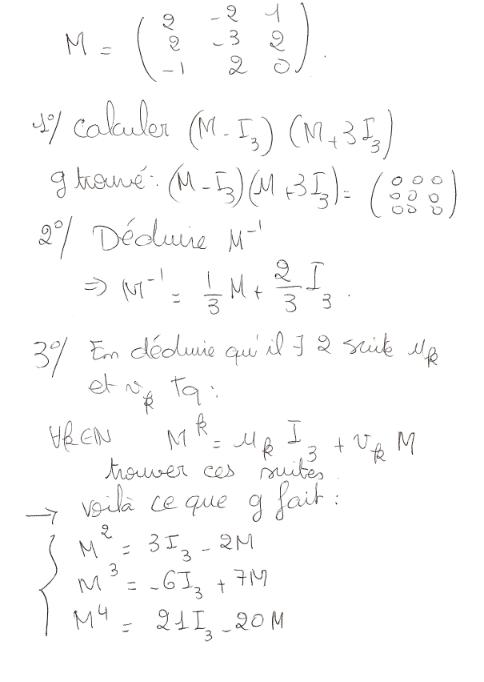 M = ( 2 -2 1
2 -3 2
-1 2 0 ).
1°/ Calculer (M - I₃) (M + 3I₃)
g trouvé : (M - I₃)(M + 3I₃) = ( 0 0 0
0 0 0
0 0 0 )
2°/ Déduire M⁻¹
⇒ M⁻¹ = 1/3 M + 2/3 I₃.
3°/ En déduire qu'il ∃ 2 suite uₖ
et vₖ Tq :
∀k∈ℕ Mᵏ = uₖ I₃ + vₖ M
trouver ces suites
→ voilà ce que g fait :
M² = 3I₃ - 2M
M³ = -6I₃ + 7M
M⁴ = 21I₃ - 20M